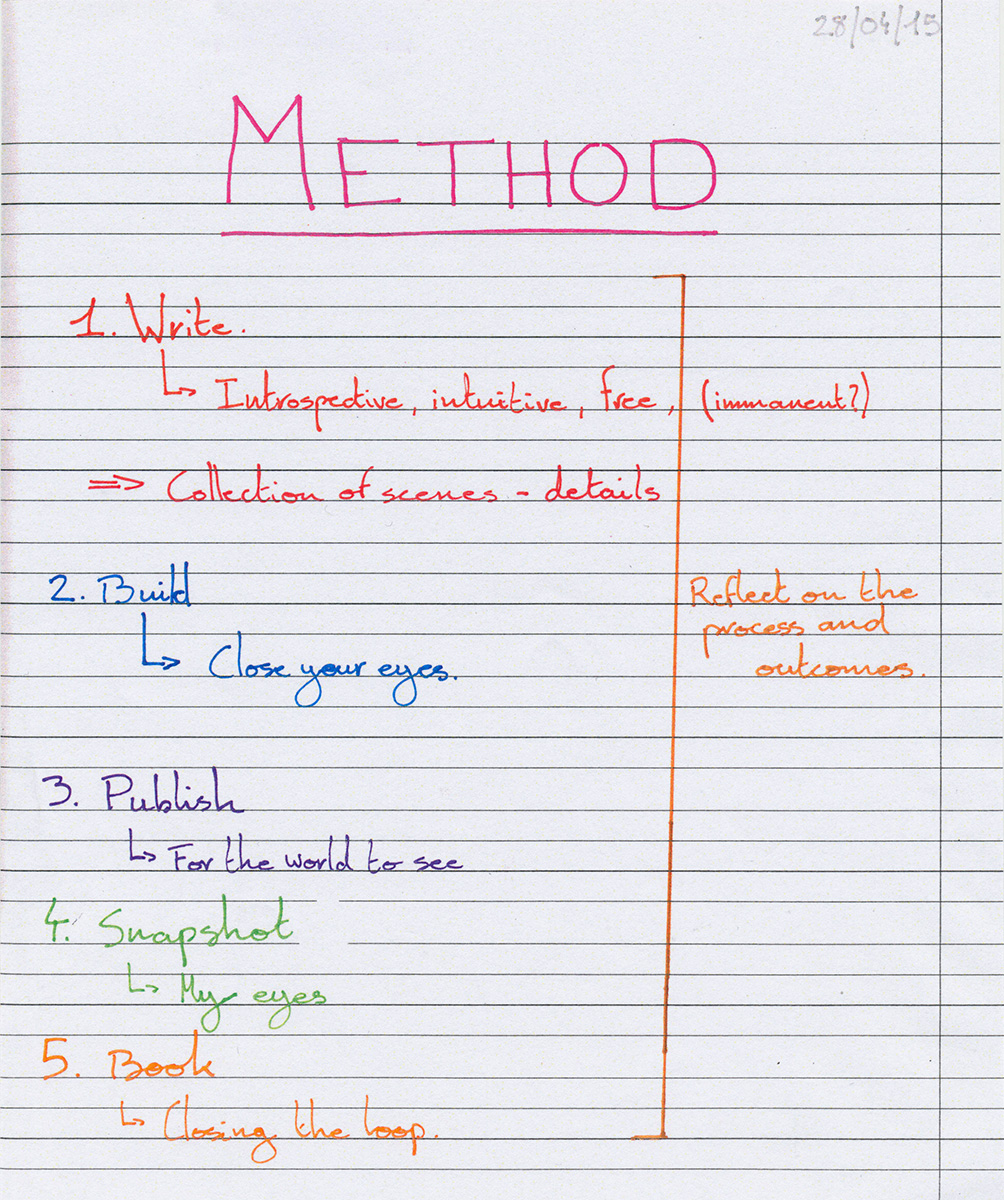 28/04/15
METHOD
1. Write.
↳ Introspective, intuitive, free, (immanent?)
=> Collection of scenes - details
2. Build
↳ Close your eyes.
Reflect on the
process and
outcomes.
3. Publish
↳ For the world to see
4. Snapshot
↳ My eyes
5. Book
↳ Closing the loop.